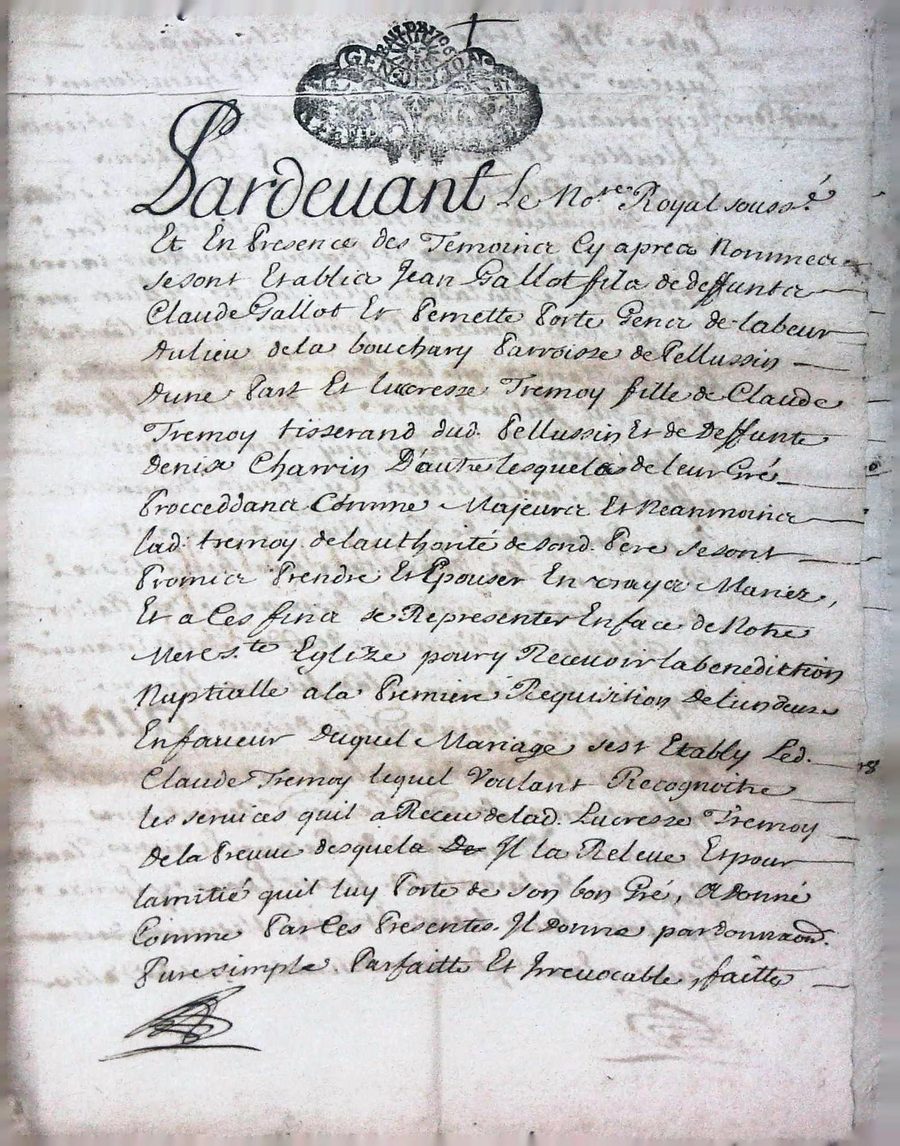 GEN. DE LION
Pardeuant Le No.re Royal souss.é
Et En Presence des Temoins Cy apres Nommes
se sont Etablis Jean Gallot fils de deffunts
Claude Gallot Et Pernette Porte Gens de labeur
du lieu de la bouchary Parroisse de Pellussin
dune Part Et lucresse Tremoy fille de Claude
Tremoy tisserand dud. Pellussin Et de Deffunte
denise Charrin D'autre lesquels de leur Gré
Procceddans Comme Majeurs Et Neanmoins
lad. tremoy de lauthorité de sond. Pere se sont
Promis Prendre Et Epouser En vrays Mariez,
Et a Ces fins se Representer En face de Notre
Mere s.te Eglize pour y Receuoir la benediction
Nuptialle a la Premiere Requisition De lun deux
En faueur duquel Mariage sest Etably Led.
Claude Tremoy lequel Voulant Recognoitre
les seruices quil a Receu de lad. Lucresse Tremoy
de la Preuue desquels Il la Releue Et pour
lamitié quil luy Porte de son bon Gré, A donné
Comme Par Ces Presentes Il donne par donnaon.
Pure simple Parfaitte Et Irreuocable, faitte